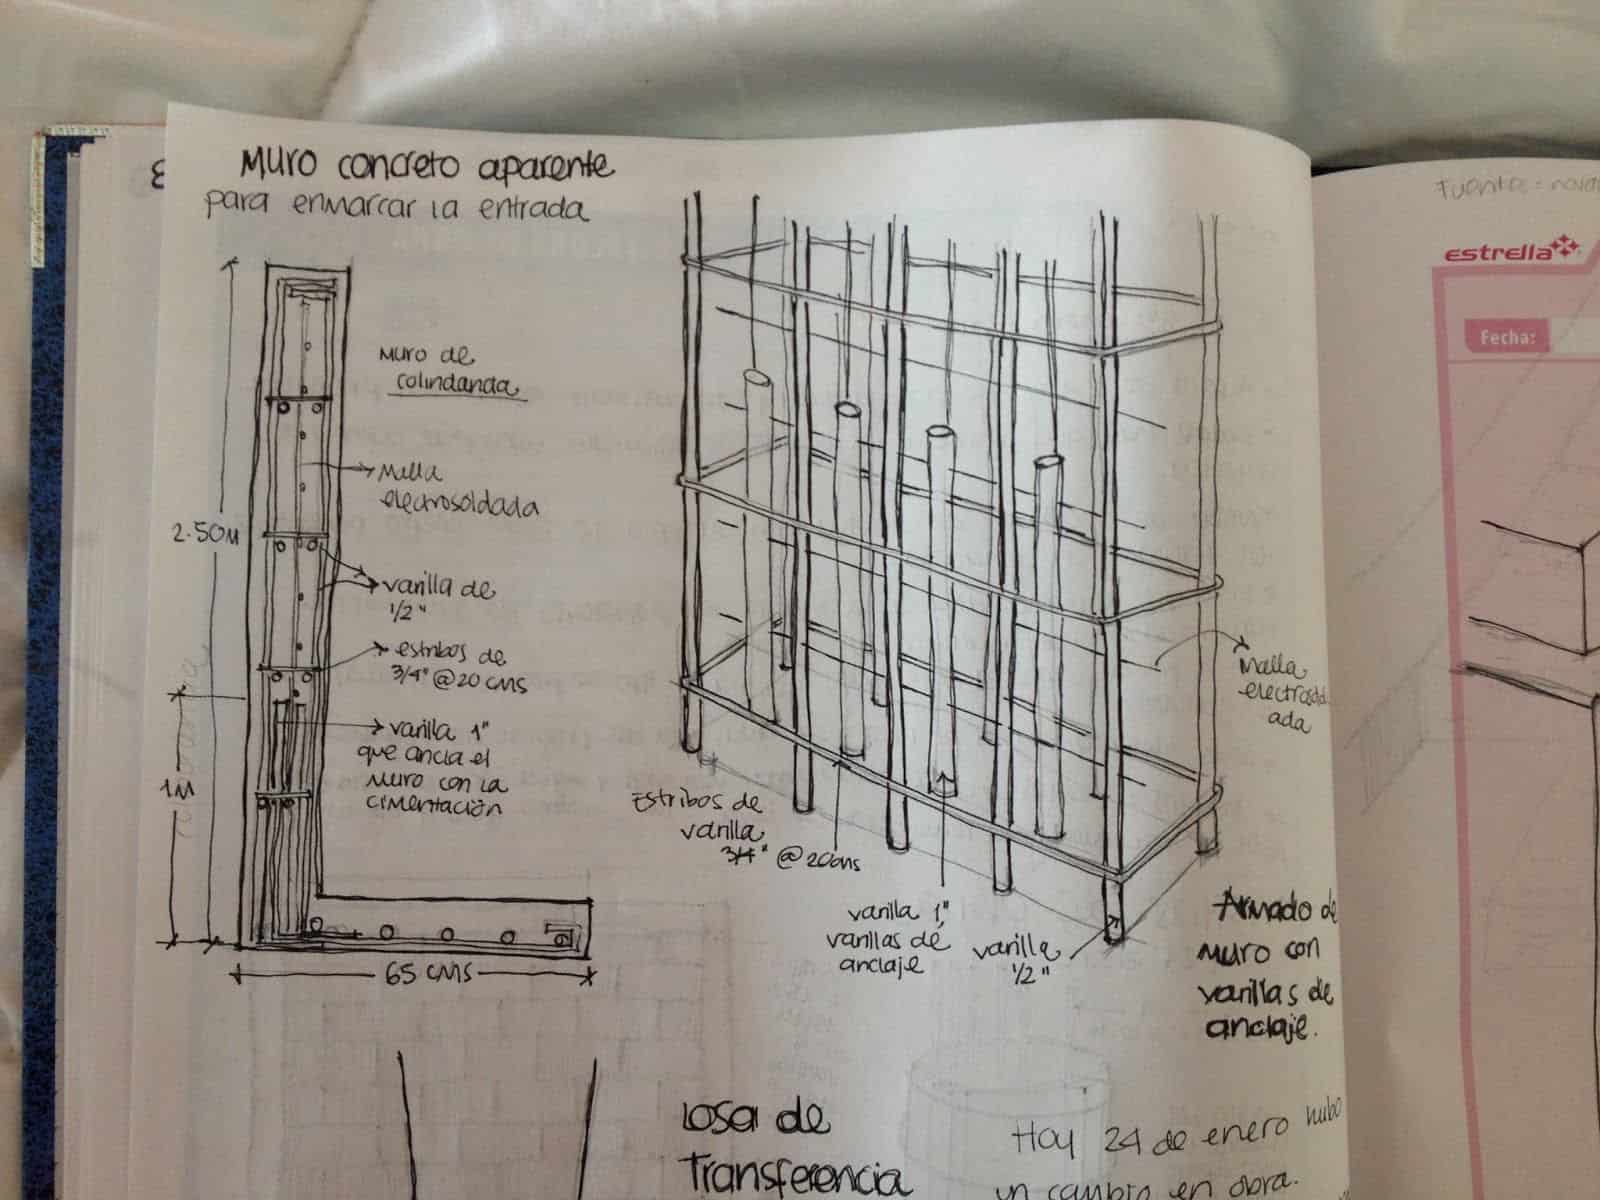 Muro concreto aparente
para enmarcar la entrada
Muro de
colindanda
Malla
electrosoldada
2.50M
varilla de
1/2"
estribos de
3/4" @20 cms
varilla 1"
que ancla el
muro con la
cimentación
1M
65 cms
Malla
electrosold
ada
Estribos de
varilla
3/4" @20cms
varilla 1"
varillas de
anclaje
varilla
1/2"
Armado de
muro con
varillas de
anclaje.
Losa de
Transferencia
Hoy 24 de enero hubo
un cambio en obra.
Fuentes = nova
estrella
Fecha: